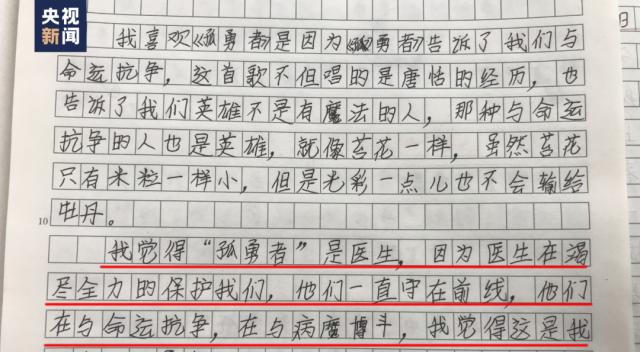 央视
新闻
日
我喜欢《孤勇者》是因为《孤勇者》告诉了我们与
命运抗争，这首歌不但唱的是唐恬的经历，也
告诉了我们英雄不是有魔法的人，那种与命运
抗争的人也是英雄，就像苔花一样，虽然苔花
只有米粒一样小，但是光彩一点儿也不会输给
牡丹。
10
我觉得“孤勇者”是医生，因为医生在渴
尽全力的保护我们，他们一直守在前线，他们
在与命运抗争，在与病魔博斗，我觉得这是我